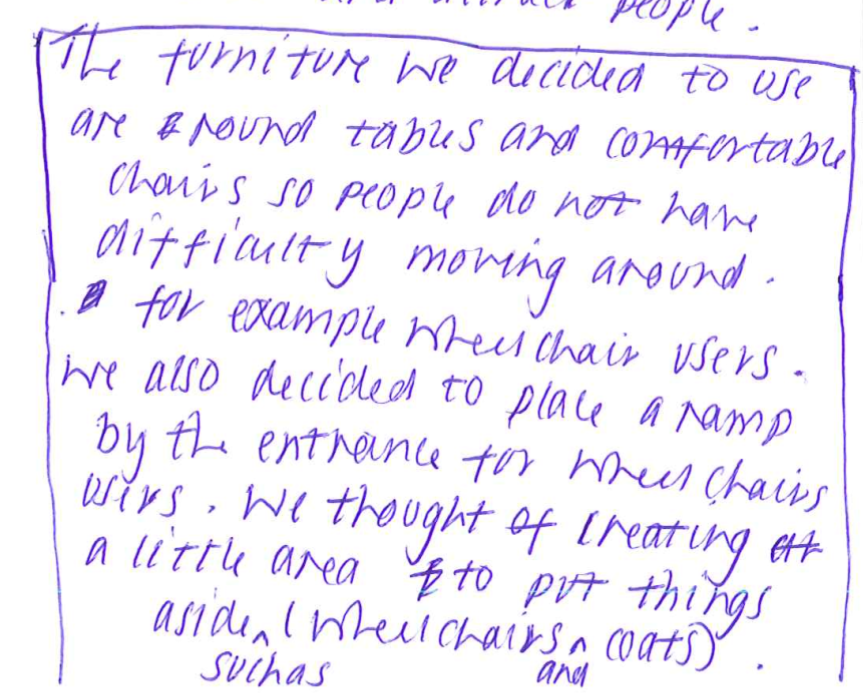 people.
The furniture we decided to use
are round tables and comfortable
chairs so people do not have
difficulty moving around.
. for example wheelchair users.
we also decided to place a ramp
by the entrance for wheel chairs
users. We thought of creating
a little area to put things
aside, (wheelchairs, coats).
such as and